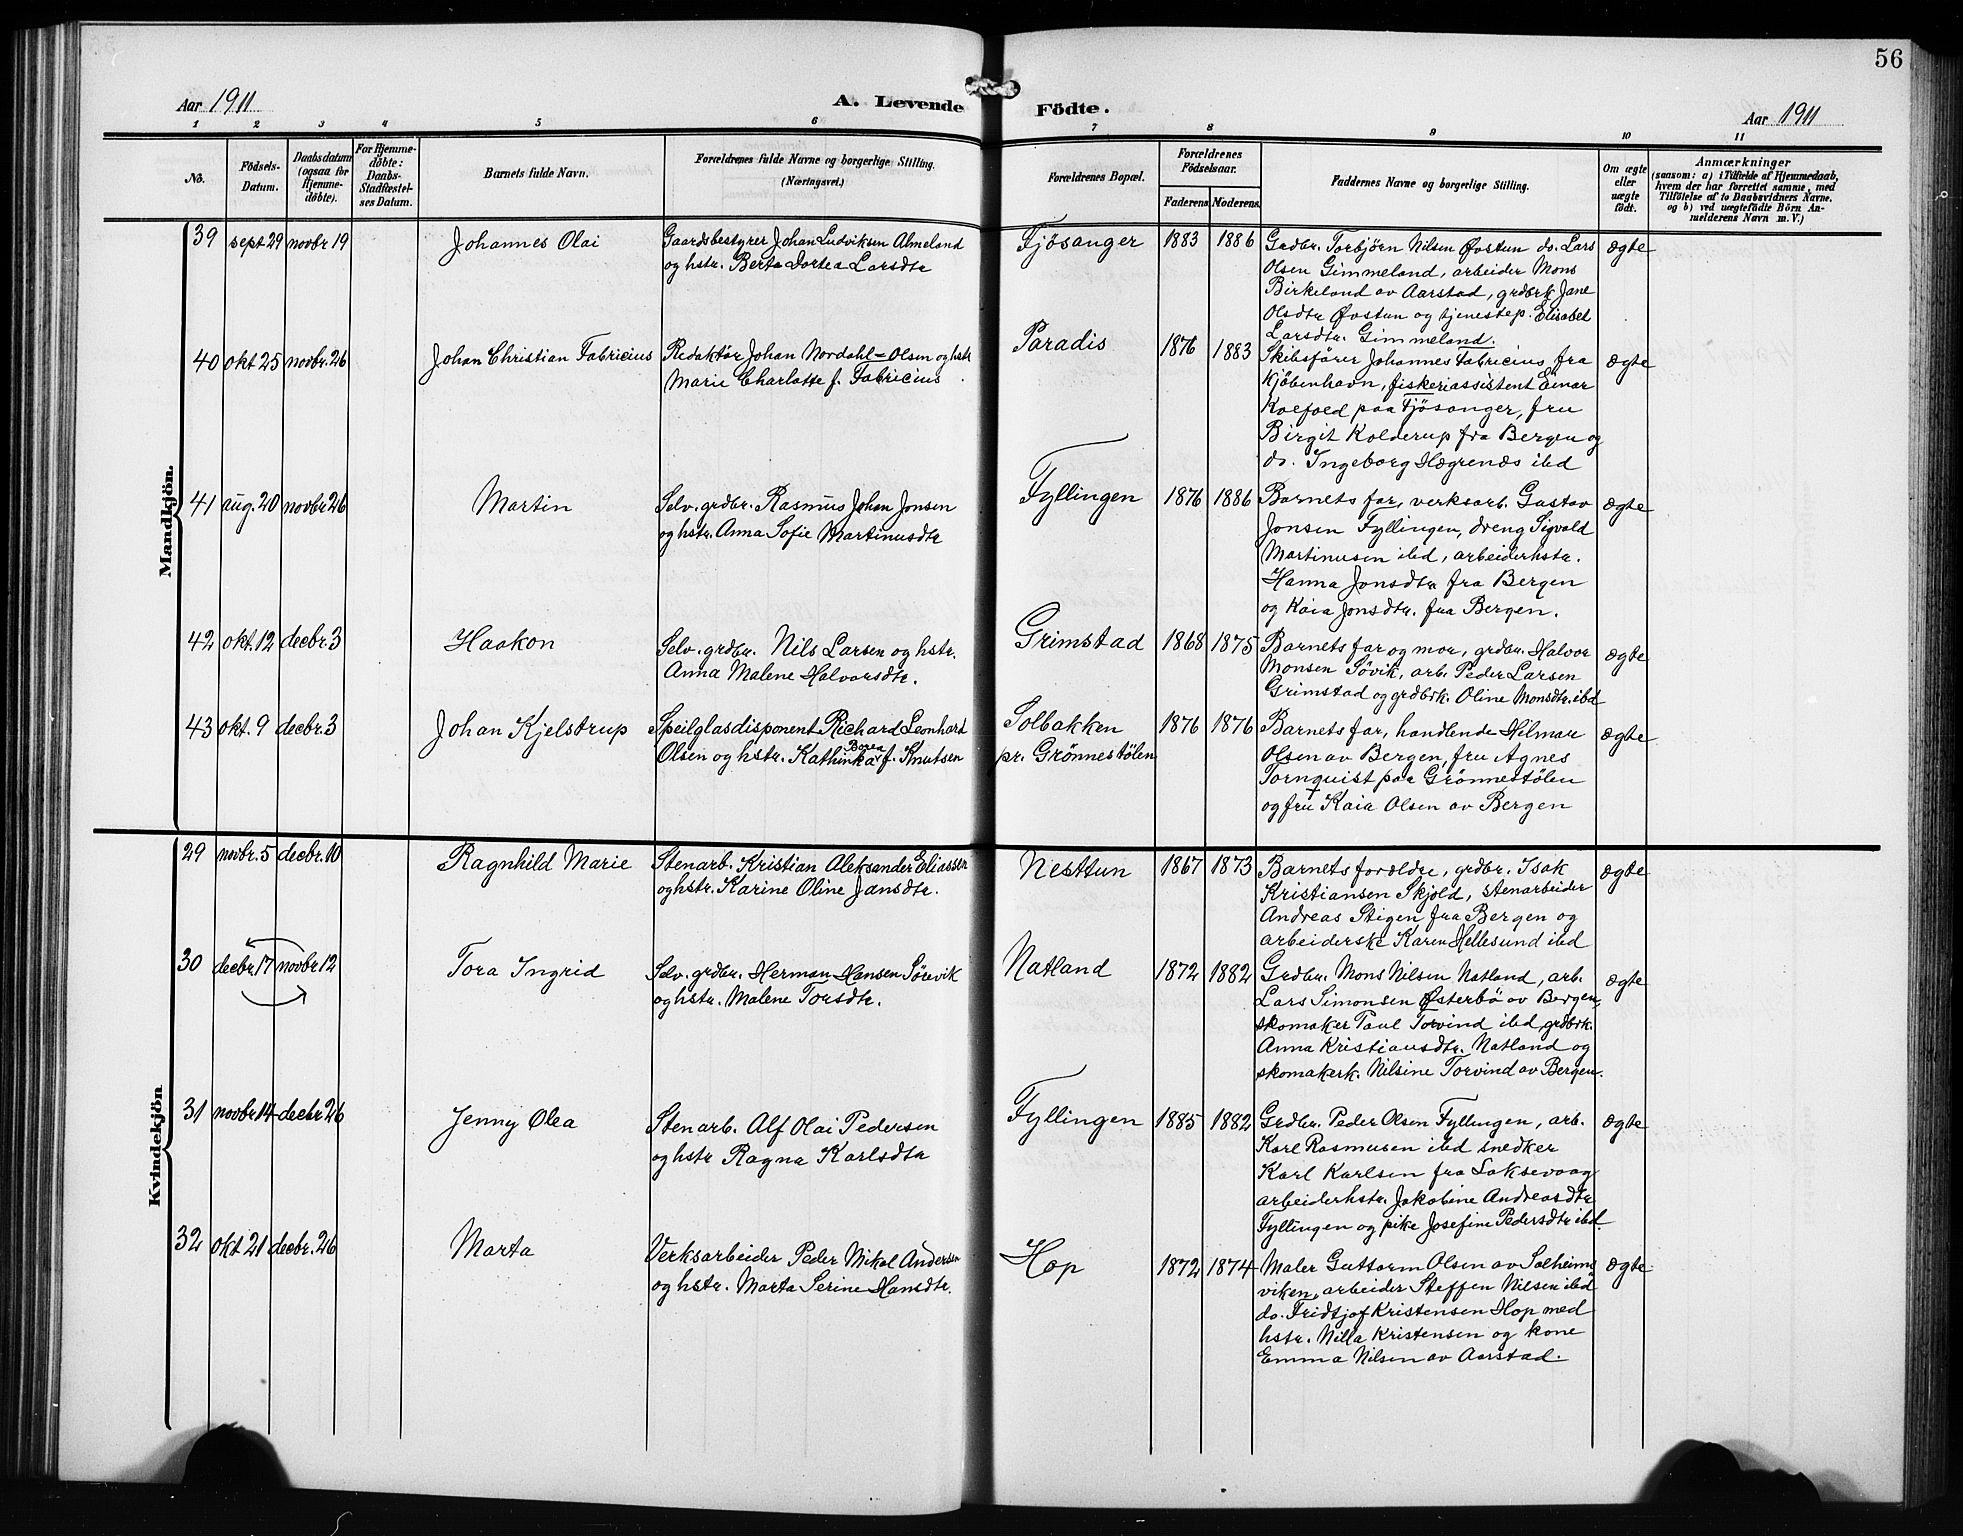 56
Aar 1911
A. Levende Födte.
Aar 1911
1 2 3 4 5 6 7 8 9 10 11
No.
Födsels-Datum.
Daabsdatum (ogsaa for Hjemmedöbte).
For Hjemmedøbte: Daabs-Stadfæstelses Datum.
Barnets fulde Navn.
Forældrenes fulde Navne og borgerlige Stilling. (Næringsvei.)
Forældrenes Bopæl.
Forældrenes Födselsaar.
Faderens. Moderens.
Faddernes Navne og borgerlige Stilling.
Om ægte eller uægte födt.
Anmærkninger
(saasom: a) i Tilfælde af Hjemmedaab,
hvem der har forrettet samme, med
Tilföielse af to Daabsvidners Navne.
og b) ved uægtefödte Börn Anmelderens Navn m. V.)
Mandkjön.
39 sept 29 novbr 19 Johannes Olai
Gaardsbestyrer Johan Ludviksen Almeland
og hstr. Berta Dortea Larsdtr
Fjösanger 1883 1886
Grdbr. Torbjörn Nilsen Øvstun do. Lars
Olsen Gimmeland, arbeider Mons
Birkeland av Aarstad, grdbrk Jane
Olsdtr Øvstun og tjenestep. Elisabet
Larsdtr. Gimmeland.
ægte
40 okt 25 novbr. 26 Johan Christian Fabricius
Redaktör Johan Nordahl-Olsen og hstr
Marie Charlotte f. Fabricius
Paradis 1876 1883
Skibsförer Johannes Fabricius fra
Kjöbenhavn, fiskeriassistent Einar
Koefoed paa Fjösanger, fru
Birgit Kolderup fra Bergen og
do. Ingeborg Hægrenæs ibd
ægte
41 aug. 20 novbr 26 Martin
Selv. grdbr. Rasmus Johan Jonsen
og hstr. Anna Sofie Martinusdtr
Fyllingen 1876 1886
Barnets far, verksarb. Gustav
Jonsen Fyllingen, dreng Sigvald
Martinusen ibd, arbeiderhstr.
Hanna Jonsdtr fra Bergen
og Kaia Jonsdtr. fra Bergen.
ægte
42 okt. 12 decbr. 3 Haakon
Selv. grdbr. Nils Larsen og hstr.
Anna Malene Halvorsdtr.
Grimstad 1868 1875
Barnets far og mor, grdbr. Halvor
Monsen Sövik, arb. Peder Larsen
Grimstad og grdbrk. Oline Monsdtr. ibd
ægte
43 okt. 9 decbr. 3 Johan Kjelstrup
Speilglasdisponent Richard Leonhard
Olsen og hstr. Kathinka Borea f. Knutsen
Solbakken
pr. Grönnestölen
1876 1876
Barnets far, handlende Hilmar
Olsen av Bergen, fru Agnes
Tornquist paa Grönnestölen
og fru Kaia Olsen av Bergen
ægte
Kvindekjön
29 novbr. 5 decbr. 10 Ragnhild Marie
Stenarb. Kristian Aleksander Eliassen
og hstr. Karine Oline Jansdtr.
Nesttun 1867 1873
Barnets forældre, grdbr. Isak
Kristiansen Skjold, stenarbeider
Andreas Stigen fra Bergen og
arbeiderske Karen Hellesund ibd
ægte
30 decbr. 17 novbr 12 Tora Ingrid
Selv. grdbr. Herman Hansen Sörevik
og hstr. Malene Torsdtr.
Natland 1872 1882
Grdbr. Mons Nilsen Natland, arb.
Lars Simonsen Østerbö av Bergen,
skomaker Paul Torvind ibd, grdbrk.
Anna Kristiansdtr. Natland og
skomakerk. Nilsine Torvind av Bergen.
ægte
31 novbr 14 decbr 26 Jenny Olea
Stenarb. Alf Olai Pedersen
og hstr Ragna Karlsdtr
Fyllingen 1885 1882
Grdbr. Peder Olsen Fyllingen, arb.
Karl Rasmusen ibd snedker
Karl Karlsen fra Laksevaag
arbeiderhstr. Jakobine Andreasdtr
Fyllingen og pike Josefine Pedersdtr ibd.
ægte
32 okt 21 decbr. 26 Marta
Verksarbeider Peder Mikal Andersen
og hstr. Marta Serine Hansdtr.
Hop 1872 1874
Maler Guttorm Olsen av Solheims
viken, arbeider Steffen Nilsen ibd
do. Fridtjof Kristensen Hop med
hstr. Nilla Kristensen og kone
Emma Nilsen av Aarstad.
ægte